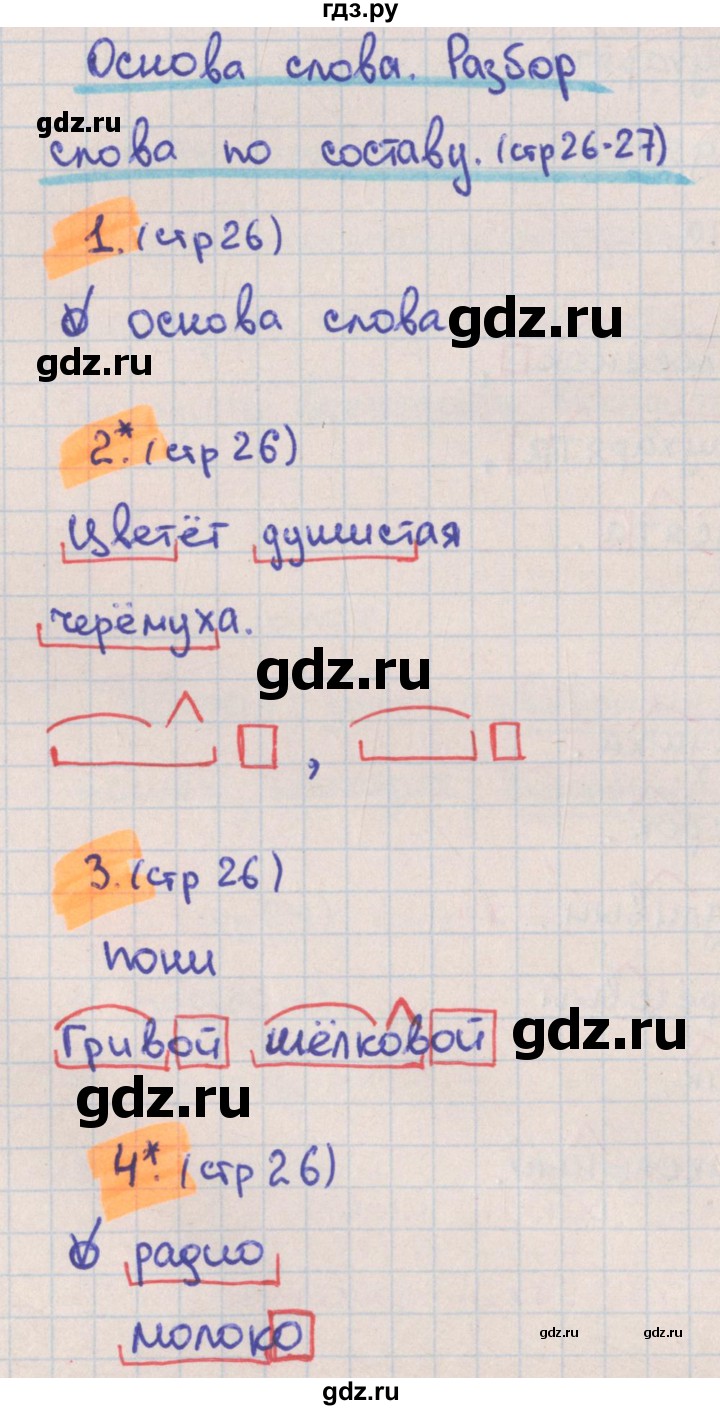 гдз.ру
Основа слова. Разбор
gdz.ru
слова по составу. (стр 26-27)
1. (стр 26)
основа слова
gdz.ru
gdz.ru
2.* (стр 26)
Цветёт душистая
черёмуха.
gdz.ru
,
3. (стр 26)
пони
Гривой шёлковой
gdz.ru
gdz.ru
4.* (стр 26)
радио
молоко
gdz.ru
gdz.ru
gdz.ru